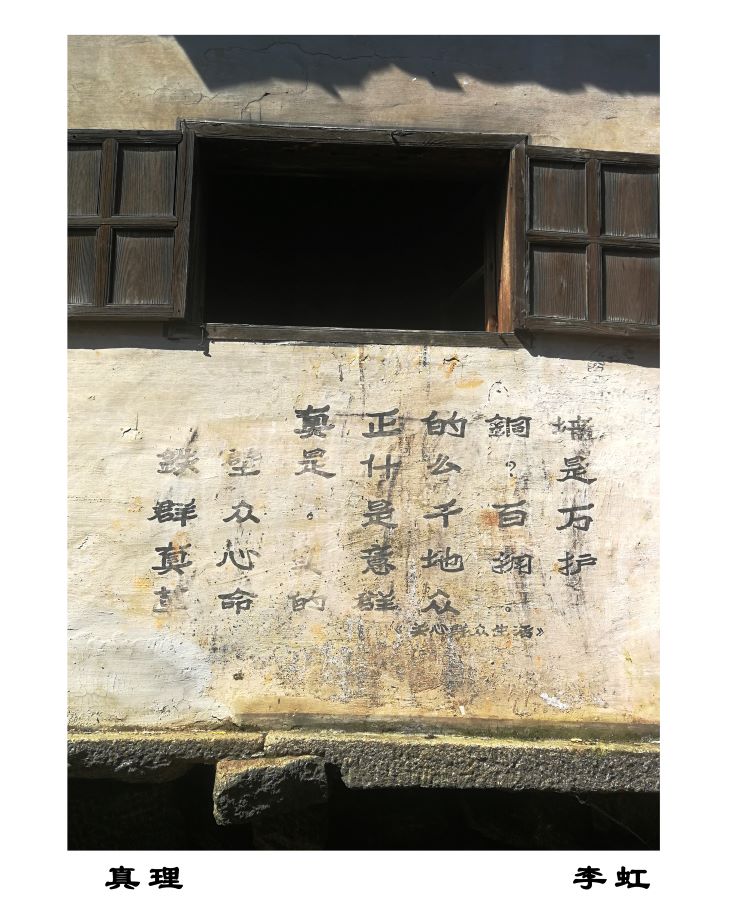 真正的銅墙
鉄壁是什么？是
群众。是千百万
真心实意地拥护
革命的群众。
《关心群众生活》
真理
李虹